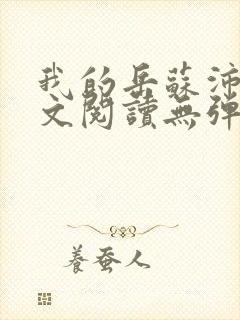 我的岳蘇沛
文閱讀無彈
養蚕人